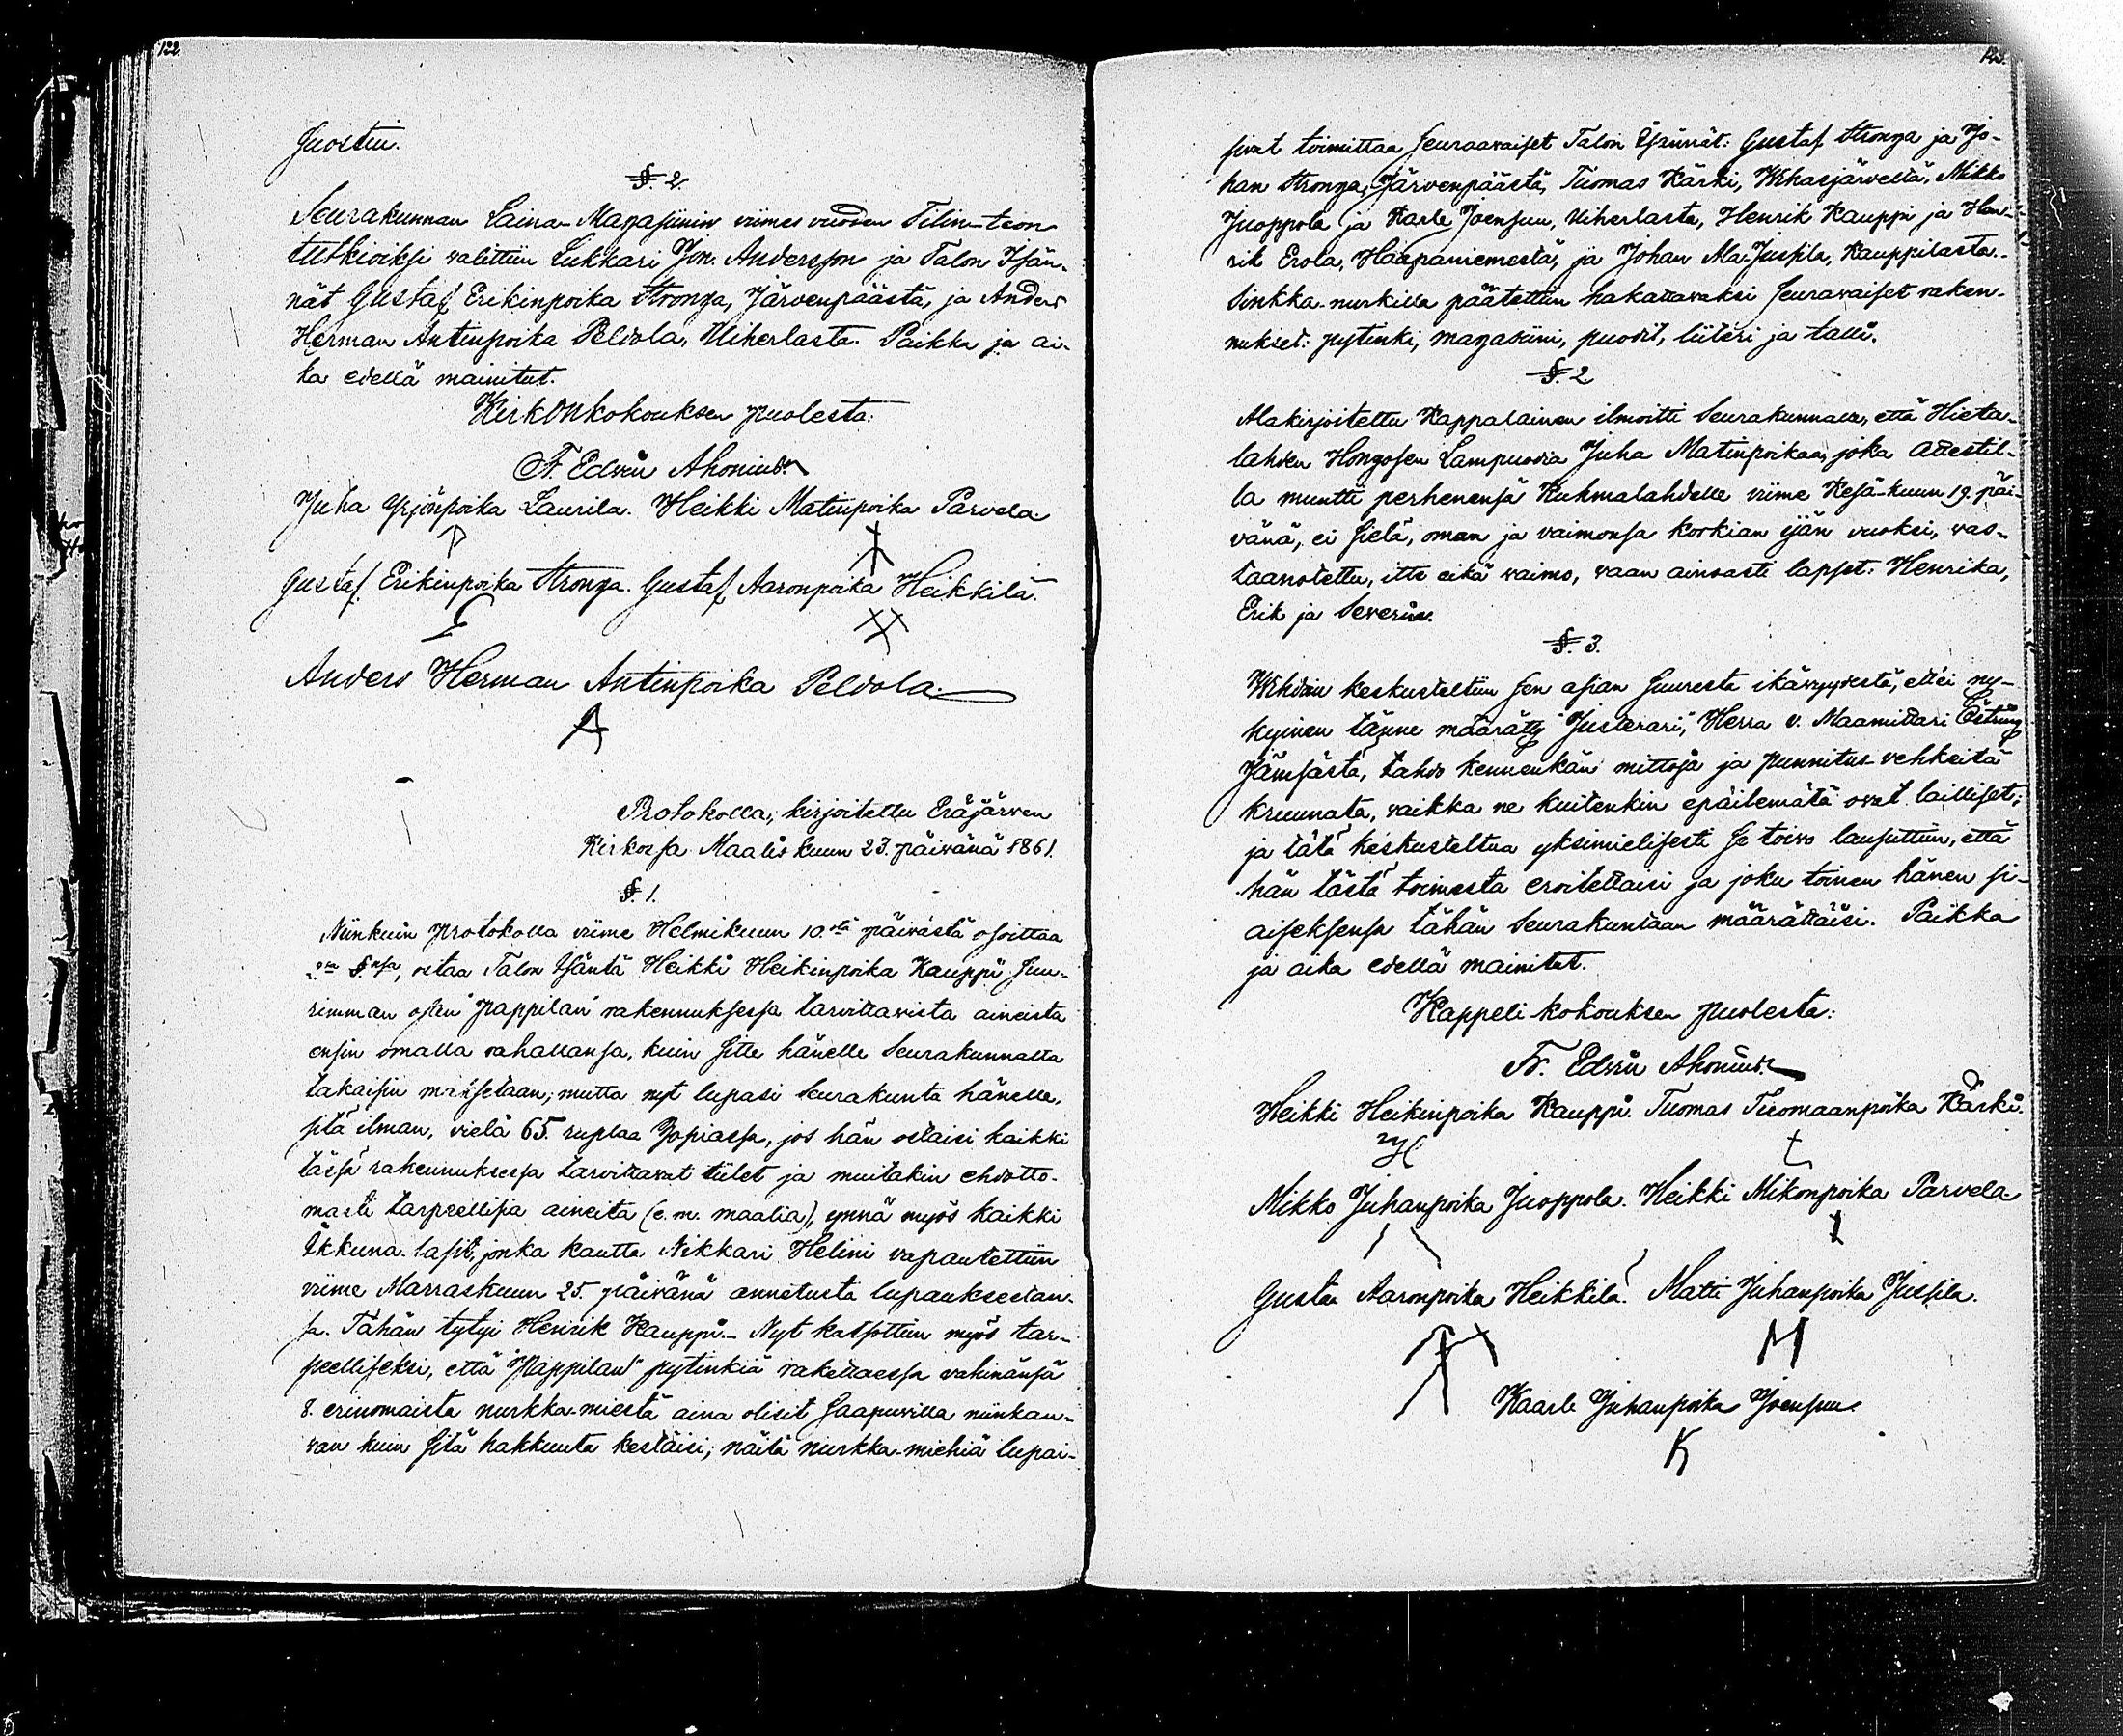 122.
Suostui.
§. 2.
Seurakunnan Laina-Magasiinin viimes vuoden Tilin-teon
tutkioiksi valittiin Lukkari Joh. Andersson ja Talon Isän-
nät Gustaf Erikinpoika Stronga, Järvenpäästä, ja Anders
Herman Antinpoika Peldola, Uiherlasta. Paikka ja ai-
ka edellä mainitut.
Kirkonkokouksen puolesta:
F. Edvin Ahonius.
Juha Yrjönpoika Laurila. Heikki Matinpoika Parvela
Gustaf Erikinpoika Stronga. Gustaf Aaronpoika Heikkilä.
Anders Herman Antinpoika Peldola.
A
Protokolla, kirjoitettu Eräjärven
Kirkossa Maaliskuun 23. päivänä 1861.
§. 1.
Niinkuin protokolla viime Helmikuun 10.stä päivästä osoittaa
2:en §:nsä, ostaa Talon Isäntä Heikki Heikinpoika Kauppi Suu-
rimman osan "Pappilan" rakennuksessa tarvittavista aineista
ensin omalla rahallansa, kuin sitte hänelle Seurakunnalta
takaisin maksetaan; mutta nyt lupasi Seurakunta hänelle,
sitä ilman, vielä 65. ruplaa Hopiassa, jos hän ostaisi kaikki
tässä rakennuksessa tarvittavat tiilet ja muitakin ehdotto-
masti tarpeellisia aineita (e.m. maalia), ynnä myös kaikki
Ikkuna-lasit, jonka kautta Nikkari Helini vapautettiin
viime Marraskuun 25. päivänä annetusta lupauksestan-
sa. Tähän tytyi Henrik Kauppi. - Nyt katsottiin myös tar-
peelliseksi, että "Pappilan" pytinkiä rakettaessa vähinänsä
8. erinomaista nurkka-miestä aina olisit Saapuvilla niinkau-
van kuin sitä hakkuuta kestäisi; näitä nurkka-miehiä lupai-
123.
sivat toimittaa Seuraavaiset Talon Isännät: Gustaf Stronga ja Jo-
han Stronga, Järvenpäästä, Tuomas Kärki, Wihasjärveltä, Mikko
Juoppola ja Kaarle Joensuu, Uiherlasta, Henrik Kauppi ja Hen-
rik Erola, Haapaniemestä, ja Johan Ma-Jussila, Kauppilasta.
Sinkka-nurkilla päätettiin hakattavaksi Seuraavaiset raken-
nukset: pytinki, magasiini, puodit, liiteri ja talli.
§. 2.
Alakirjoitettu Kappalainen ilmoitti Seurakunnalle, että Hieta-
lahden Hongosen Lampuodia Juha Matinpoikaa, joka attestil-
la muutti perhenensä Kuhmalahdelle viime Kesä-kuun 19. päi-
vänä, ei sielä, oman ja vaimonsa korkian ijän vuoksi, vas-
taanotettu, itte eikä vaimo, vaan ainoasti lapset: Henrika,
Erik ja Severin.
§. 3.
Wihdoin keskusteltiin Sen asian Suuresta ikävyydestä, ett'ei ny-
kyinen tänne määrätty "Justerari," Herra v. Maamittari Östring
Jämsästä, tahdo kennenkän mittoja ja punnitus-vehkeitä
kruunata, vaikka ne kuitenkin epäilemätä ovat lailliset;
ja tätä keskusteltua yksimielisesti Se toivo lausuttiin, että
hän tästä toimesta eroitettaisi ja joku toinen hänen si-
aiseksensa tähän Seurakuntaan määrättäisi. Paikka
ja aika edellä mainitut.
Kappeli-kokouksen puolesta:
Fr. Edvin Ahonius.
Heikki Heikinpoika Kauppi. Tuomas Tuomaanpoika Kärki.
Mikko Juhanpoika Juoppola. Heikki Mikonpoika Parvela
Gustaa Aaronpoika Heikkilä. Matti Juhanpoika Jussila.
M
Kaarle Juhanpoika Joensuu.
K